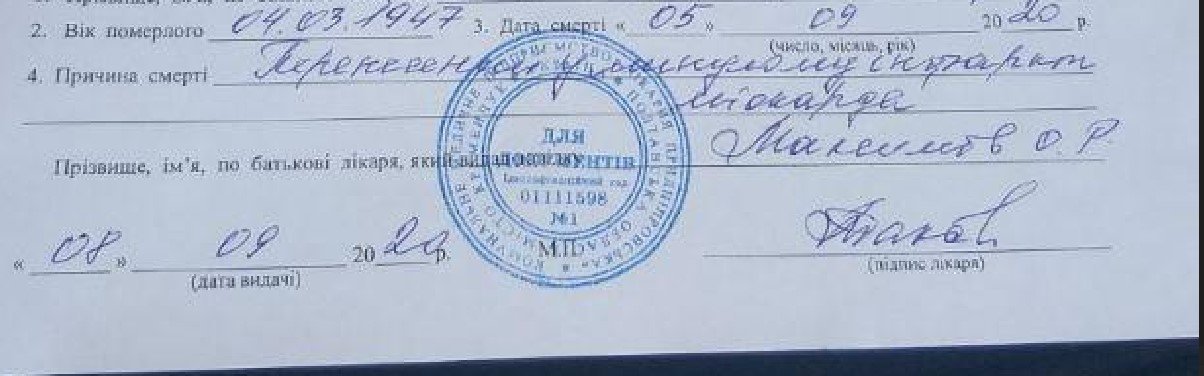 2. Вік померлого 04.03.1947 3. Дата смерті « 05 » 09 20 20 р.
(число, місяць, рік)
4. Причина смерті Перенесений у минулому інфаркт
міокарда
Прізвище, ім’я, по батькові лікаря, який видав О. Р.
ДЛЯ
ДОКУМЕНТІВ
Ідентифікаційний код
01111598
№1
М.П.
« 08 » 09 20 20 р.
(дата видачі)
(підпис лікаря)